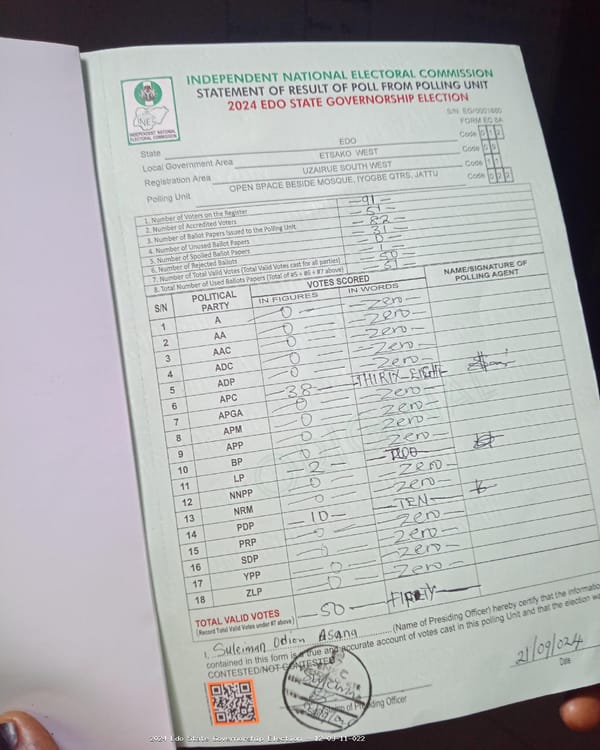 INDEPENDENT NATIONAL ELECTORAL COMMISSION
STATEMENT OF RESULT OF POLL FROM POLLING UNIT
2024 EDO STATE GOVERNORSHIP ELECTION
S/N: EG/0001860
FORM EC 8A
INEC
INDEPENDENT NATIONAL ELECTORAL COMMISSION
State EDO Code 12
Local Government Area ETSAKO WEST Code
Registration Area UZAIRUE SOUTH WEST Code 11
Polling Unit OPEN SPACE BESIDE MOSQUE, IYOGBE QTRS, JATTU Code 022
1. Number of Voters on the Register -91-
2. Number of Accredited Voters -51-
3. Number of Ballot Papers Issued to the Polling Unit -82-
4. Number of Unused Ballot Papers -31-
5. Number of Spoiled Ballot Papers -0-
6. Number of Rejected Ballots -1-
7. Number of Total Valid Votes (Total Valid Votes cast for all parties) -50-
8. Total Number of Used Ballots Papers (Total of #5 + #6 + #7 above) -51-
S/N POLITICAL PARTY VOTES SCORED NAME/SIGNATURE OF POLLING AGENT
IN FIGURES IN WORDS
1 A 0 Zero
2 AA 0 Zero
3 AAC 0 Zero
4 ADC 0 Zero
5 ADP 0 Zero
6 APC -38- THIRTY-EIGHT
7 APGA 0 Zero
8 APM 0 Zero
9 APP 0 Zero
10 BP 0 Zero
11 LP -2- TWO
12 NNPP 0 Zero
13 NRM 0 Zero
14 PDP -10- -TEN-
15 PRP 0 Zero
16 SDP 0 Zero
17 YPP 0 Zero
18 ZLP 0 Zero
TOTAL VALID VOTES -50- FIFTY
(Record Total Valid Votes under #7 above)
I, Suleiman Odion Asana (Name of Presiding Officer) hereby certify that the information
contained in this form is a true and accurate account of votes cast in this Polling Unit and that the election was
CONTESTED/NOT CONTESTED
21/09/024
Date
of Presiding Officer
2024 Edo State Governorship Election - 12-09-11-022